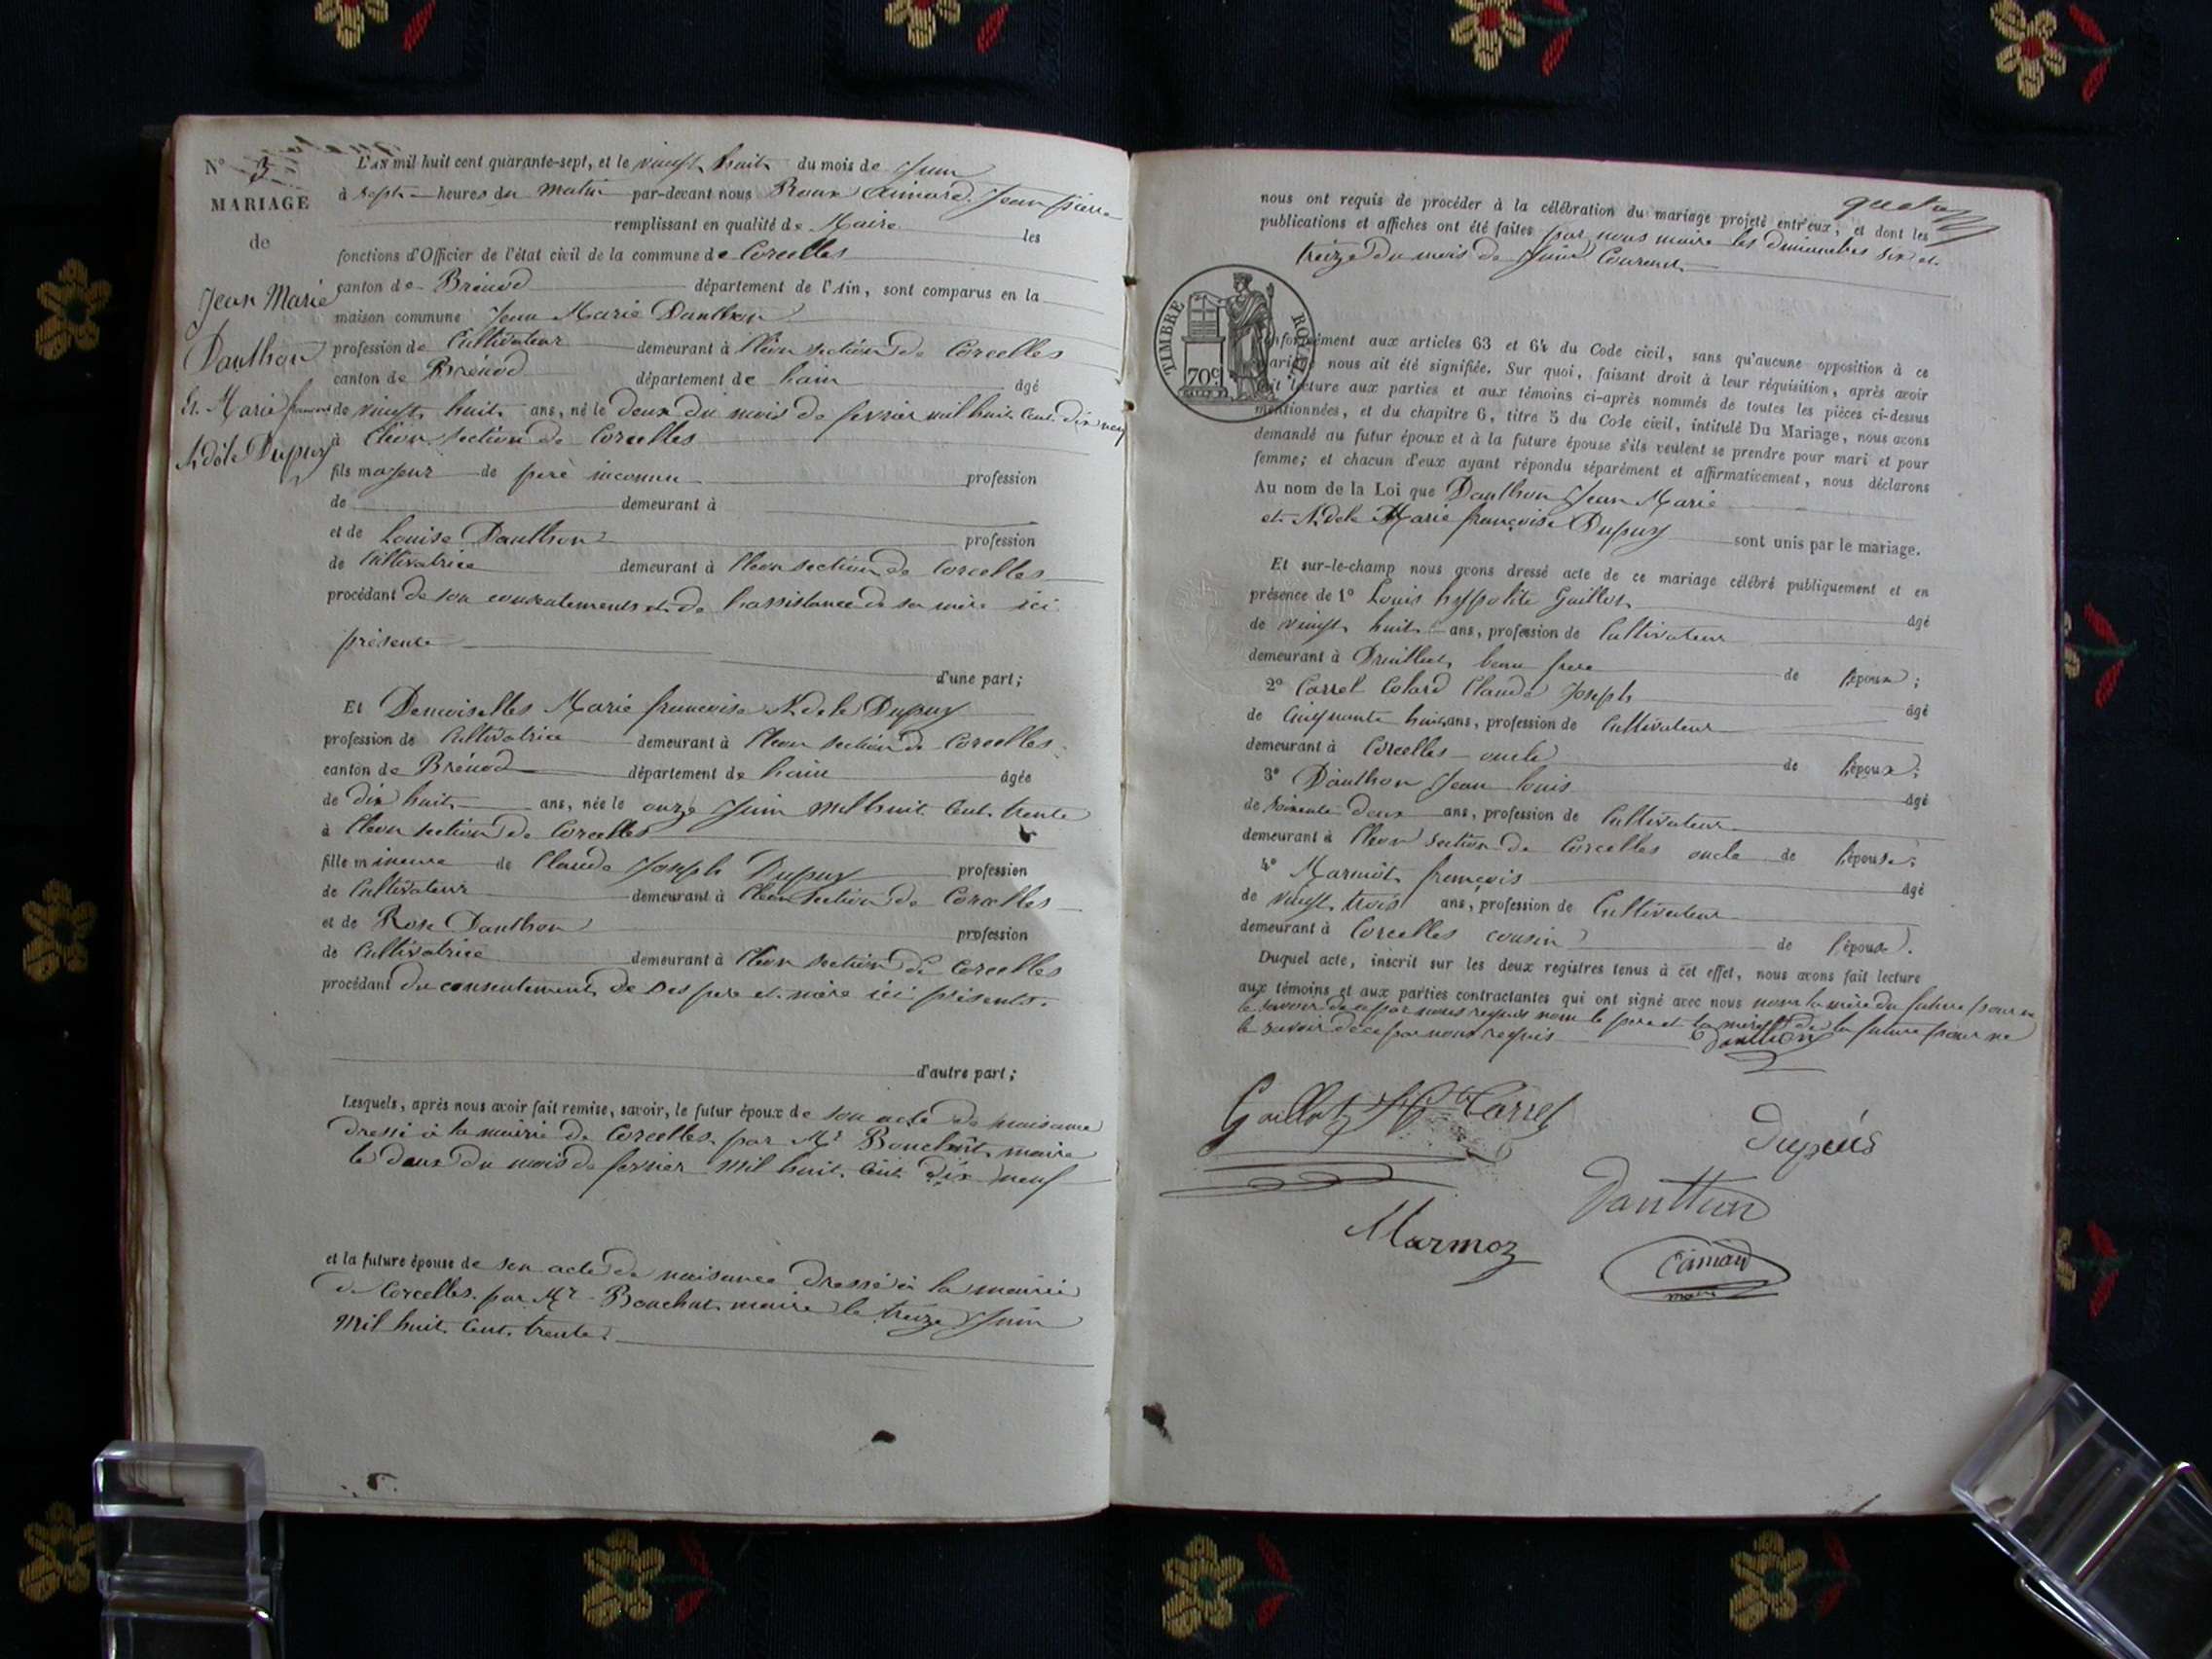 N° 3
MARIAGE
de
Jean Marie
Danthon
Et. Marie francoise
Adèle Dupuy
L'AN mil huit cent quarante-sept, et le vingt huit du mois de Juin
à sept heures du matin par-devant nous Roux Aimard Jean pierre
remplissant en qualité de Maire les
fonctions d'Officier de l'état civil de la commune de Corcelles
canton de Brénod département de l'Ain, sont comparus en la
maison commune Jean Marie Danthon
profession de Cultivateur demeurant à Cléon section de Corcelles
canton de Brénod département de lain âgé
de vingt huit ans, né le deux du mois de fevrier mil huit cent dix neuf
à Cléon section de Corcelles
fils majeur de père inconnu profession
de demeurant à
et de Louise Danthon profession
de Cultivatrice demeurant à Cleon section de Corcelles
procédant de son consentement et de l'assistance de sa mère ici
présente
d'une part;
Et Demoiselles Marie francoise Adele Dupuy
profession de Cultivatrice demeurant à Cleon section de Corcelles
canton de Brénod département de lain âgée
de dix huit ans, née le onze Juin mil huit cent trente
à Cleon section de Corcelles
fille mineure de Claude Joseph Dupuy profession
de Cultivateur demeurant à Cleon section de Corcelles
et de Rose Danthon profession
de Cultivatrice demeurant à Cleon section de Corcelles
procédant du consentement de ses pere et mère ici présents.
d'autre part;
Lesquels, après nous avoir fait remise, savoir, le futur époux de son acte de naisance
dressé à la mairie de Corcelles par Mr Bouchut maire
le deux du mois de fevrier mil huit cent dix neuf
et la future épouse de son acte de naisance dressé à la mairie
de Corcelles par Mr Bouchut maire le treize Juin
mil huit cent trente.
nous ont requis de procéder à la célébration du mariage projeté entr'eux, et dont les
publications et affiches ont été faites par nous maire les dimanches six et
treize du mois de Juin Courant
TIMBRE ROYAL
70c
conformément aux articles 63 et 64 du Code civil, sans qu'aucune opposition à ce
mariage nous ait été signifiée. Sur quoi, faisant droit à leur réquisition, après avoir
fait lecture aux parties et aux témoins ci-après nommés de toutes les pièces ci-dessus
mentionnées, et du chapitre 6, titre 5 du Code civil, intitulé Du Mariage, nous avons
demandé au futur époux et à la future épouse s'ils veulent se prendre pour mari et pour
femme; et chacun d'eux ayant répondu séparément et affirmativement, nous déclarons
Au nom de la Loi que Danthon Jean Marie
et Adele Marie françoise Dupuy sont unis par le mariage.
Et sur-le-champ nous avons dressé acte de ce mariage célébré publiquement et en
présence de 1° Louis hyppolite Guillot âgé
de vingt huit ans, profession de Cultivateur
demeurant à beau frere de l'époux;
2° Carrel Colard Claude Joseph âgé
de Cinquante huit ans, profession de Cultivateur
demeurant à Corcelles oncle de l'époux;
3° Danthon Jean louis âgé
de Soixante deux ans, profession de Cultivateur
demeurant à Cleon section de Corcelles oncle de l'épouse;
4° Marmot françois âgé
de vingt trois ans, profession de Cultivateur
demeurant à Corcelles cousin de l'épouse.
Duquel acte, inscrit sur les deux registres tenus à cet effet, nous avons fait lecture
aux témoins et aux parties contractantes qui ont signé avec nous non la mère du futur pour ne
le savoir de ce par nous requis non le pere et la mère de la future pour ne
le savoir de ce par nous requis Danthon
Guillot Carrel
Dupuis
Danthon
Marmoz
Aimard
maire